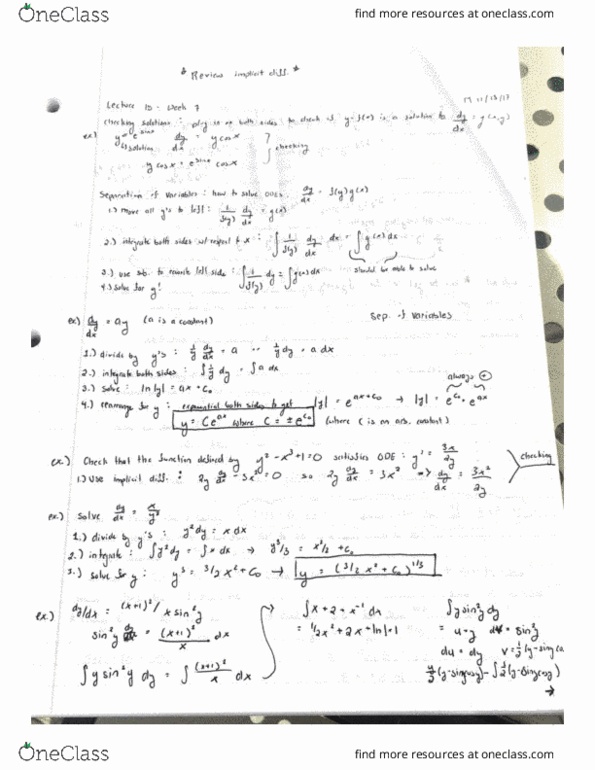 OneClass
find more resources at oneclass.com
* Review implicit diff. *
Lecture 15 - Week 7
M 11/13/17
Checking solutions : plug in on both sides to check if y=f(x) is a solution to dy/dx = g(x,y)
ex.) y = e^sinx dy/dx = y cosx } checking
solution
y cosx = e^sinx cosx
Separation of Variables : how to solve ODEs dy/dx = f(y)g(x)
1.) move all y's to left : 1/f(y) dy/dx = g(x)
2.) integrate both sides w/ respect to x : ∫ 1/f(y) dy/dx dx = ∫ g(x) dx
3.) use sub. to rewrite left side : ∫ 1/f(y) dy = ∫ g(x) dx should be able to solve
4.) solve for y!
ex.) dy/dx = ay (a is a constant) Sep. of Variables
1.) divide by y's : 1/y dy/dx = a 1/y dy = a dx
2.) integrate both sides : ∫ 1/y dy = ∫ a dx
3.) solve : ln|y| = ax + C₀
always ⊕
4.) rearrange for y : exponential both sides to get |y| = e^(ax+C₀) → |y| = e^C₀ · e^ax
y = Ce^ax where C = ±e^C₀ (where C is an arb. constant)
ex.) Check that the function defined by y² - x³ + 1 = 0 satisfies ODE : y' = 3x/2y checking
1.) Use implicit diff. : 2y dy/dx - 3x² = 0 so 2y dy/dx = 3x² => dy/dx = 3x²/2y
ex.) solve dy/dx = x/y²
1.) divide by y's : y² dy = x dx
2.) integrate : ∫y² dy = ∫x dx → y³/3 = x²/2 + C₀
3.) solve for y : y³ = 3/2 x² + C₀ → y = (3/2 x² + C₀)^1/3
ex.) dy/dx = (x+1)²/ x sin²y
∫ x + 2 + x⁻¹ dx
∫ y sin²y dy
sin²y dy/dx = (x+1)²/x dx
= 1/2x² + 2x + ln|x|
= u = y dv = sin²y
du = dy v = 1/2(y - sinyco
∫ y sin²y dy = ∫ (x+1)²/x dx
y/2 (y - sinycosy) - ∫ 1/2 (y - sinycosy)
→
OneClass
find more resources at oneclass.com